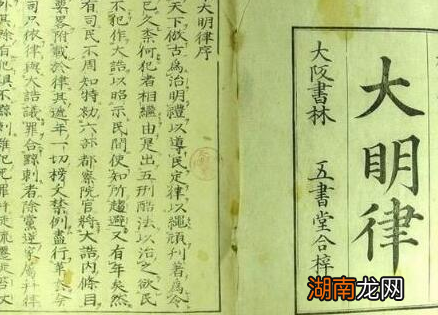 大明律
大阪書林
五書堂合梓
大明律序
天下倣古為治明禮以導民定律以繩頑刋著為令
已久柰何犯者相繼由是出五刑酷法以治之欲民
不犯作大誥以昭示民間使知所趨避又有年矣然
有司不周知特勑六部都察院官將大誥内條目
要畧附載於律其逓年一切榜文禁例盡行革去今
司只依律與大誥議罪合黥刺者除黨逆家屬并律
湖南龙网